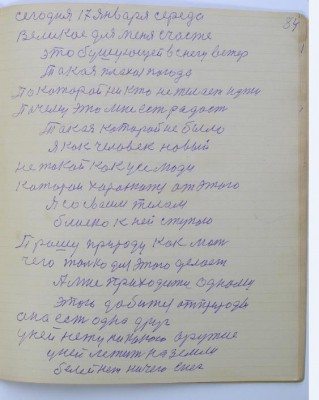 34
сегодня 17 января середа
Великое для меня счасте
это бушующей в снегу ветер
Такая плохая погода
По которой никто не желает
Почему это мне ест радост
Такая которой не было
Я как человек новый
не такой как усе люди
которои от этого
Я со своим телам
близко к ней ступаю
Прашу природу как мат
чего толко для этого делает
А мне приходится одному
этого добится от природы
она ест одна друг
у ней нету никакого оружие
у ней лежит на земле
белей нет ничего снег